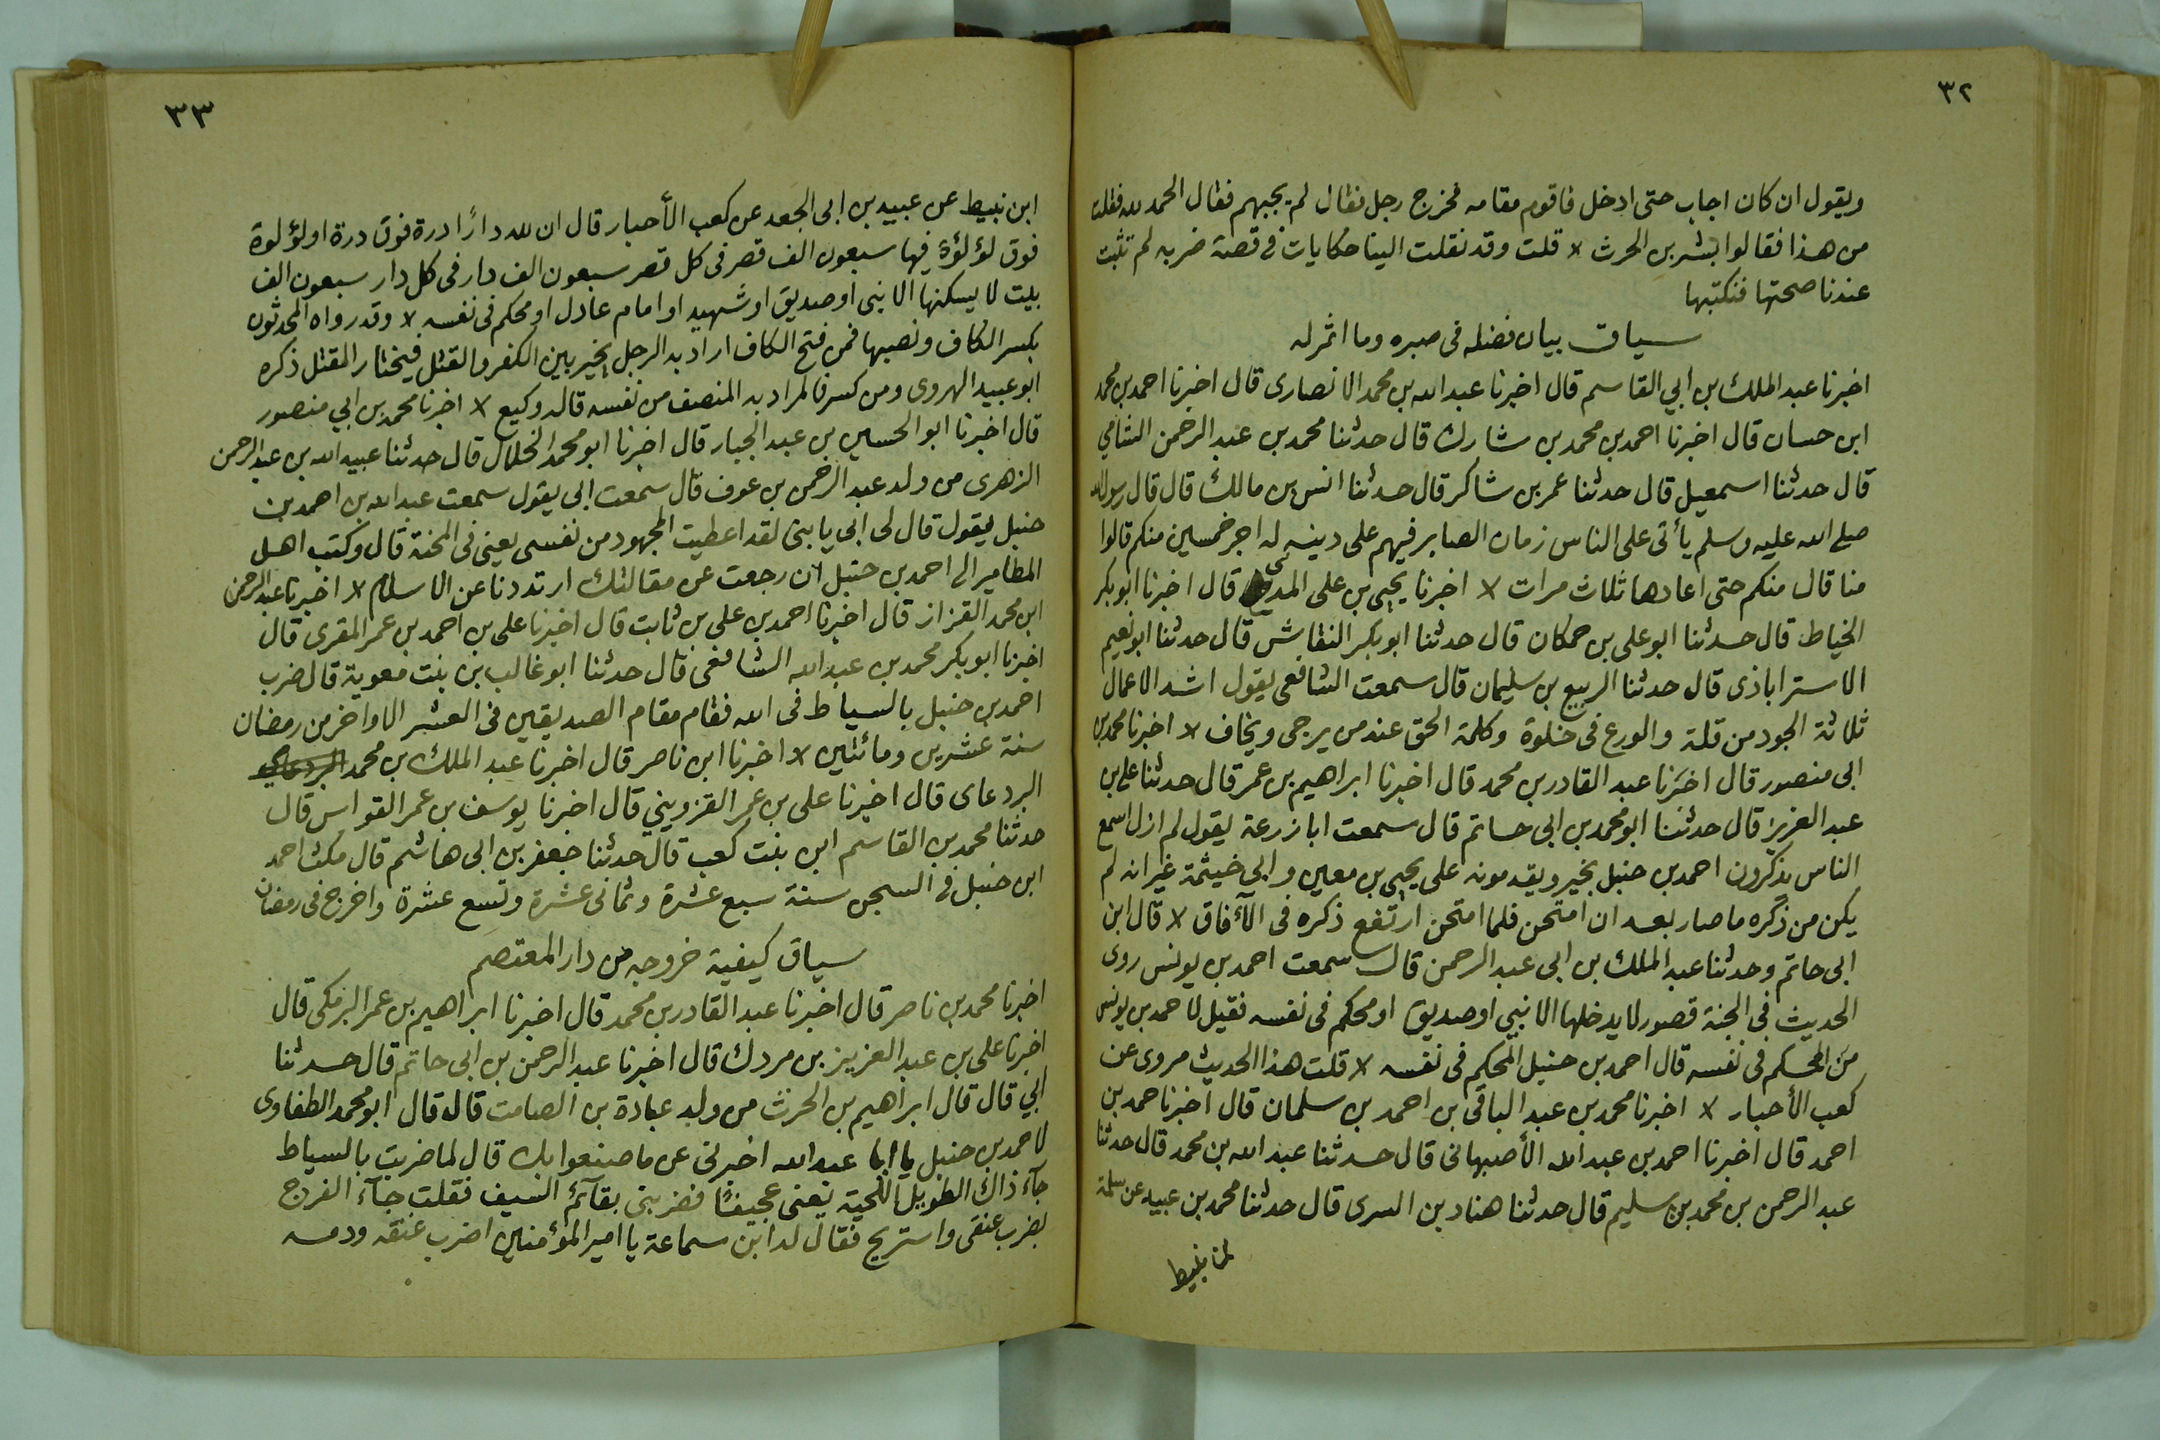 ٣٢
ويقول ان كان اجاب حتى ادخل فاقوم مقامه فخرج رجل فقال لم يجبهم فقال الحمد لله فقلت
من هذا فقالوا بشر بن الحرث × قلت وقد نقلت الينا حكايات في قصة ضربه لم تثبت
عندنا صحتها فنكتبها
سياق بيان فضله فى صبره وما اثمر له
اخبرنا عبد الملك بن ابي القاسم قال اخبرنا عبد الله بن محمد الانصارى قال اخبرنا احمد بن محمد
ابن حسان قال اخبرنا احمد بن محمد بن شارك قال حدثنا محمد بن عبد الرحمن الشامي
قال حدثنا اسمعيل قال حدثنا عمر بن شاكر قال حدثنا انس بن مالك قال قال رسول الله
صلى الله عليه وسلم يأتى على الناس زمان الصابر فيهم على دينه له اجر خمسين منكم قالوا
منا قال منكم حتى اعادها ثلاث مرات × اخبرنا يحيى بن على قال اخبرنا ابو بكر
الخياط قال حدثنا ابو على بن حمكان قال حدثنا ابو بكر النقاش قال حدثنا ابو نعيم
الاستراباذى قال حدثنا الربيع بن سليمان قال سمعت الشافعى يقول اشد الاعمال
ثلاثة الجود من قلة والورع فى خلوة وكلمة الحق عند من يرجى ويخاف × اخبرنا محمد بن
ابى منصور قال اخبرنا عبد القادر بن محمد قال اخبرنا ابراهيم بن عمر قال حدثنا على بن
عبد العزيز قال حدثنا ابو محمد بن ابى حاتم قال سمعت ابا زرعة يقول لم ازل اسمع
الناس يذكرون احمد بن حنبل بخير ويقدمونه على يحيى بن معين وابى خيثمة غير انه لم
يكن من ذكره ما صار بعد ان امتحن فلما امتحن ارتفع ذكره فى الآفاق × قال ابن
ابى حاتم وحدثنا عبد الملك بن ابى عبد الرحمن قال سمعت احمد بن يونس روى
الحديث فى الجنة قصور لا يدخلها الا نبي او صديق او محكم فى نفسه فقيل لاحمد بن يونس
من المحكم فى نفسه قال احمد بن حنبل المحكم فى نفسه × قلت هذا الحديث مروى عن
كعب الأحبار × اخبرنا محمد بن عبد الباقى بن احمد بن سلمان قال اخبرنا حمد بن
احمد قال اخبرنا احمد بن عبد الله الأصبهانى قال حدثنا عبد الله بن محمد قال حدثنا
عبد الرحمن بن محمد بن سليم قال حدثنا هناد بن السرى قال حدثنا محمد بن عبيد عن سلمة
نبيط
٣٣
ابن نبيط عن عبيد بن ابى الجعد عن كعب الأحبار قال ان لله دارًا درة فوق درة او لؤلؤة
فوق لؤلؤة فيها سبعون الف قصر فى كل قصر سبعون الف دار فى كل دار سبعون الف
بيت لا يسكنها الا نبى او صديق او شهيد او امام عادل او محكم فى نفسه × وقد رواه المحدثون
بكسر الكاف ونصبها فمن فتح الكاف اراد به الرجل يخير بين الكفر والقتل فيختار القتل ذكره
ابو عبيد الهروى ومن كسر فالمراد به المنصف من نفسه قاله وكيع × اخبرنا محمد بن ابي منصور
قال اخبرنا ابو الحسين بن عبد الجبار قال اخبرنا ابو محمد الخلال قال حدثنا عبيد الله بن عبد الرحمن
الزهرى من ولد عبد الرحمن بن عوف قال سمعت ابى يقول سمعت عبد الله بن احمد بن
حنبل يقول قال لى ابى يا بنى لقد اعطيت المجهود من نفسى يعنى فى المحنة قال وكتب اهل
المطامير الى احمد بن حنبل ان رجعت عن مقالتك ارتددنا عن الاسلام × اخبرنا عبد الرحمن
ابن محمد القزاز قال اخبرنا احمد بن على بن ثابت قال اخبرنا على بن احمد بن عمر المقرى قال
اخبرنا ابو بكر محمد بن عبد الله الشافعى قال حدثنا ابو غالب بن بنت معوية قال ضرب
احمد بن حنبل بالسياط فى الله فقام مقام الصديقين فى العشر الاواخر من رمضان
سنة عشرين ومائتين × اخبرنا ابن ناصر قال اخبرنا عبد الملك بن محمد
البردعاى قال اخبرنا على بن عمر القزوينى قال اخبرنا يوسف بن عمر القواس قال
حدثنا محمد بن القاسم ابن بنت كعب قال حدثنا جعفر بن ابى هاشم قال مكث احمد
ابن حنبل فى السجن سنة سبع عشرة وثمانى عشرة وتسع عشرة واخرج فى رمضان
سياق كيفية خروجه من دار المعتصم
اخبرنا محمد بن ناصر قال اخبرنا عبد القادر بن محمد قال اخبرنا ابراهيم بن عمر البرمكى قال
اخبرنا على بن عبد العزيز بن مردك قال اخبرنا عبد الرحمن بن ابى حاتم قال حدثنا
ابي قال قال ابراهيم بن الحرث من ولد عبادة بن الصامت قال قال ابو محمد الطفاوى
لاحمد بن حنبل يا ابا عبد الله اخبرنى عن ما صنعوا بك قال لما ضربت بالسياط
جآء ذاك الطويل اللحية يعنى عجيفًا فضربنى بقآئم السيف فقلت جآء الفرج
يضرب عنقى واستريح فقال له ابن سماعة يا امير المؤمنين اضرب عنقه ودمه